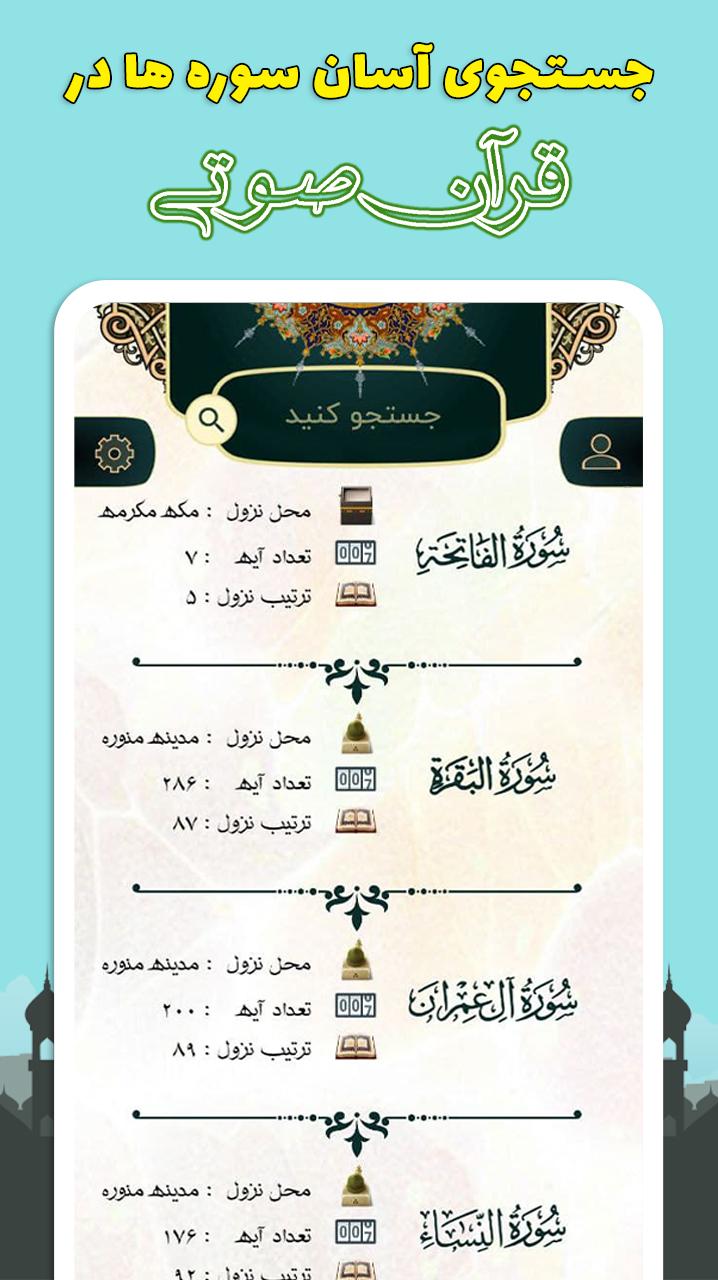 جستجوی آسان سوره ها در
قرآن صوتی
جستجو کنید
سُورَةُ الفَاتِحَةِ
محل نزول : مکه مکرمه
تعداد آیه : ۷
ترتیب نزول : ۵
سُورَةُ البَقَرَةِ
محل نزول : مدینه منوره
تعداد آیه : ۲۸۶
ترتیب نزول : ۸۷
سُورَةُ آلِ عِمْرَان
محل نزول : مدینه منوره
تعداد آیه : ۲۰۰
ترتیب نزول : ۸۹
سُورَةُ النِّسَاء
محل نزول : مدینه منوره
تعداد آیه : ۱۷۶
ترتیب نزول : ۹۲